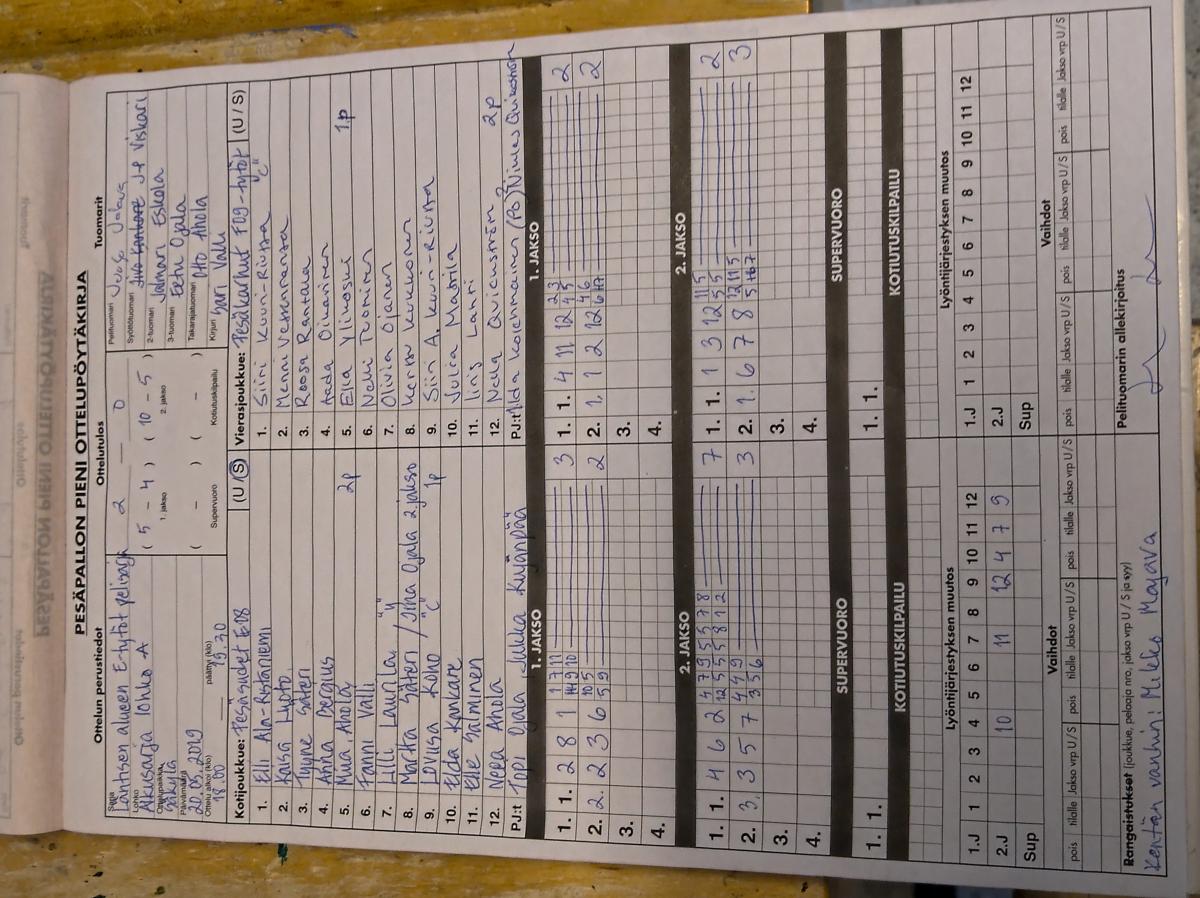 PESÄPALLON PIENI OTTELUPÖYTÄKIRJA
Ottelun perustiedot
Ottelutulos
Tuomarit
Sarja
Läntisen alueen E-tytöt pelisarja
Lohko
Alkusarja lohko A
Ottelupaikka
Säkylä
Päivämäärä
20.05.2019
Ottelu alkoi (klo)
18.00
päättyi (klo)
19.30
2 — 0
( 5 - 4 ) ( 10 - 5 )
1. jakso
2. jakso
( - ) ( - )
Supervuoro
Kotiutuskilpailu
Pelituomari
Syöttötuomari
J-P Viskari
2-tuomari
Jalmari Eskola
3-tuomari
Eetu Ojala
Takarajatuomari
Otto Ahola
Kirjuri
Sari Valli
Kotijoukkue: Pesäsudet E08 (U / S)
1. Elli Ala-Ristaniemi
2. Kaisa
3. Tuune Säteri
4. Anna Bergius
5. Miia Ahola 2p
6. Fanni Valli
7. Lilli Laurila
8. Martta Säteri / Iina Ojala 2.jakso
9. Loviisa Kono "C" 1p
10. Elda Kankare
11. Elle Salminen
12. Neea Ahola
PJ:t Topi Ojala Jukka Kujanpää
Vierasjoukkue: Pesäkarhut F09-tytöt (U / S)
1. Siiri Kuon-Riussa "C"
2. Menni Vestenranta
3. Roosa Rantala
4. Aada Oikarinen
5. Ella Ylikoski 1p
6. Nelli Tuominen
7. Olivia Ojanen
8. Kerttu
9. Siiri A. Kuon-Riussa
10. Julia Mattila
11. Iiris Lanri
12. Nella Qvickström 2p
PJ:t
1. JAKSO
1. JAKSO
1. 1. 2 8 1 3
2. 2. 2 3 6 2
3.
4.
1. 1. 4 11 12 2
2. 1. 1 2 12 2
3.
4.
2. JAKSO
2. JAKSO
1. 1. 4 6 2 7
2. 3. 3 5 7 3
3.
4.
1. 1. 1 3 12 2
2. 1. 6 7 8 3
3.
4.
SUPERVUORO
SUPERVUORO
1. 1.
1. 1.
KOTIUTUSKILPAILU
KOTIUTUSKILPAILU
Lyöntijärjestyksen muutos
Lyöntijärjestyksen muutos
1.J 1 2 3 4 5 6 7 8 9 10 11 12
2.J 10 11 12 4 7 9
Sup
1.J 1 2 3 4 5 6 7 8 9 10 11 12
2.J
Sup
Vaihdot
Vaihdot
pois tilalle Jakso vrp U / S pois tilalle Jakso vrp U / S pois tilalle Jakso vrp U / S
pois tilalle Jakso vrp U / S pois tilalle Jakso vrp U / S pois tilalle Jakso vrp U / S
Rangaistukset (joukkue, pelaaja nro, jakso vrp U / S ja syy)
Kentän vanhin: Mikko Majava
Pelituomarin allekirjoitus